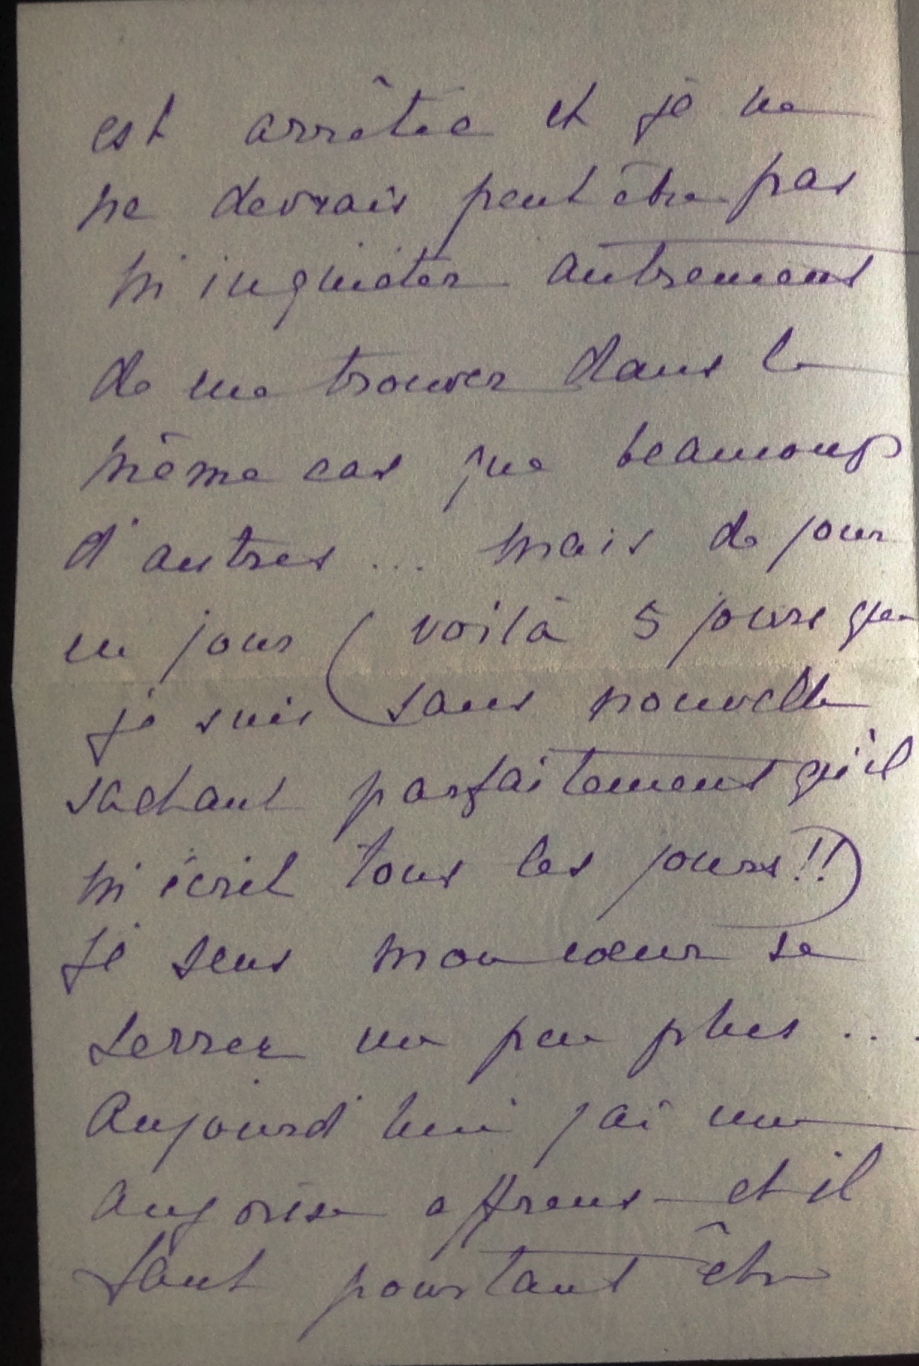 est arrêtée et je ne
ne devrais peut être pas
m'inquiéter autrement
de me trouver dans le
même cas que beaucoup
d'autres ... mais de jour
en jour (voilà 5 jours que
je suis sans nouvelle
sachant parfaitement qu'il
m'écrit tous les jours!!)
Je sens mon coeur se
serrer un peu plus ...
Aujourd'hui j'ai une
angoisse affreuse et il
faut pourtant être